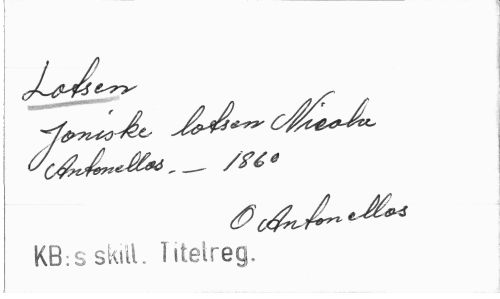 Lotsen
Joniske lotsen Nicola
Antonellos. — 1860
O Antonellos
KB:s skill. Titelreg.